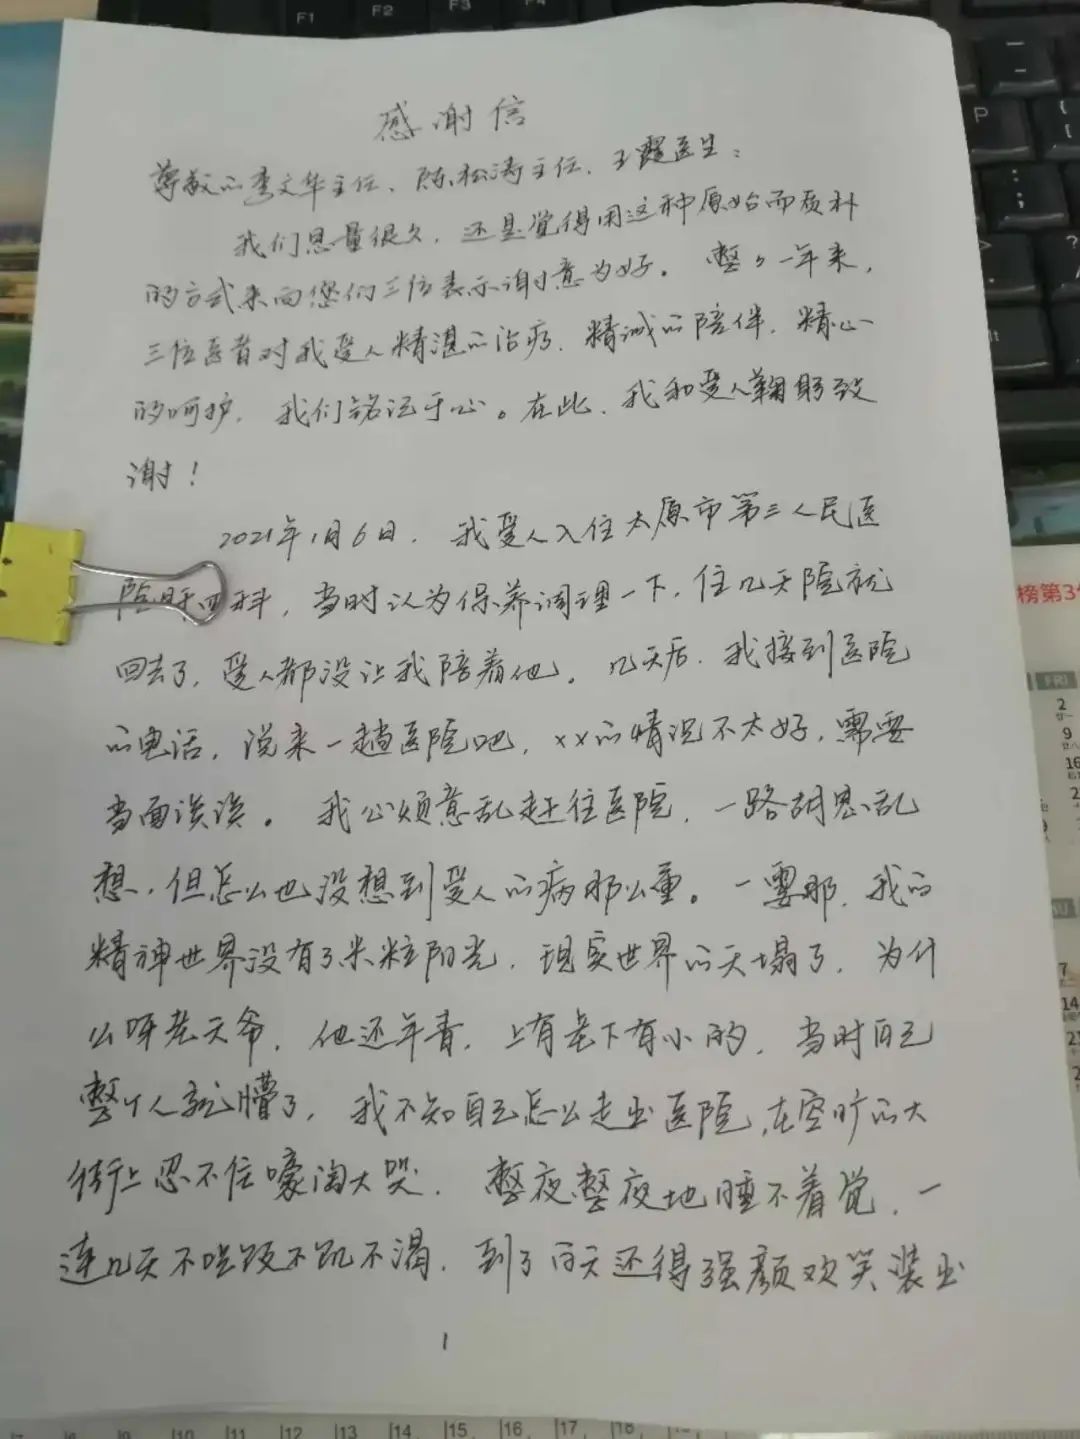 F1 F2 F3 F4
P
感谢信
尊敬的李文华主任、陈松涛主任、王霞医生:
我们思量很久,还是觉得用这种原始而质朴
的方式来向您们三位表示谢意为好。整了一年来,
三位医者对我爱人精湛的治疗、精诚的陪伴、精心
的呵护,我们铭记于心。在此,我和爱人鞠躬致
谢!
2021年1月6日,我爱人入住太原市第三人民医
院肝四科,当时认为保养调理一下,住几天院就
回去了,爱人都没让我陪着他。几天后,我接到医院
的电话,说来一趟医院吧,xx的情况不太好,需要
当面谈谈。我心烦意乱赶往医院,一路胡思乱
想,但怎么也没想到爱人的病那么重。一霎那,我的
精神世界没有了米粒阳光,现实世界的天塌了,为什
么呀老天爷,他还年青,上有老下有小的,当时自己
整个人就懵了,我不知自己怎么走出医院,在空旷的大
街上忍不住嚎淘大哭,整夜整夜地睡不着觉,一
连几天不吃饭不饥不渴,到了白天还得强颜欢笑装出
1
榜第3
FRI
2
9
16
7
14
10 11 12 13 14 15 16 17 18